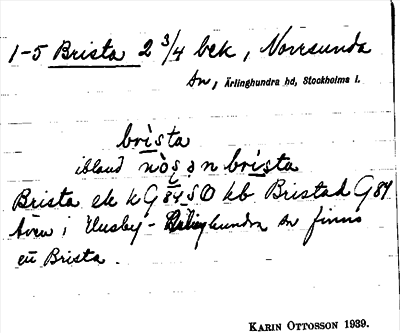 1-5 Brista 2 3/4 bek, Norrsunda
sn, Ärlinghundra hd, Stockholms l.
brista
ibland nòsǝn brista
Brista ek k G 84 SO kb Bristad G 84
Även i Husby-Ärlinghundra sn finns
ett Brista.
KARIN OTTOSSON 1939.